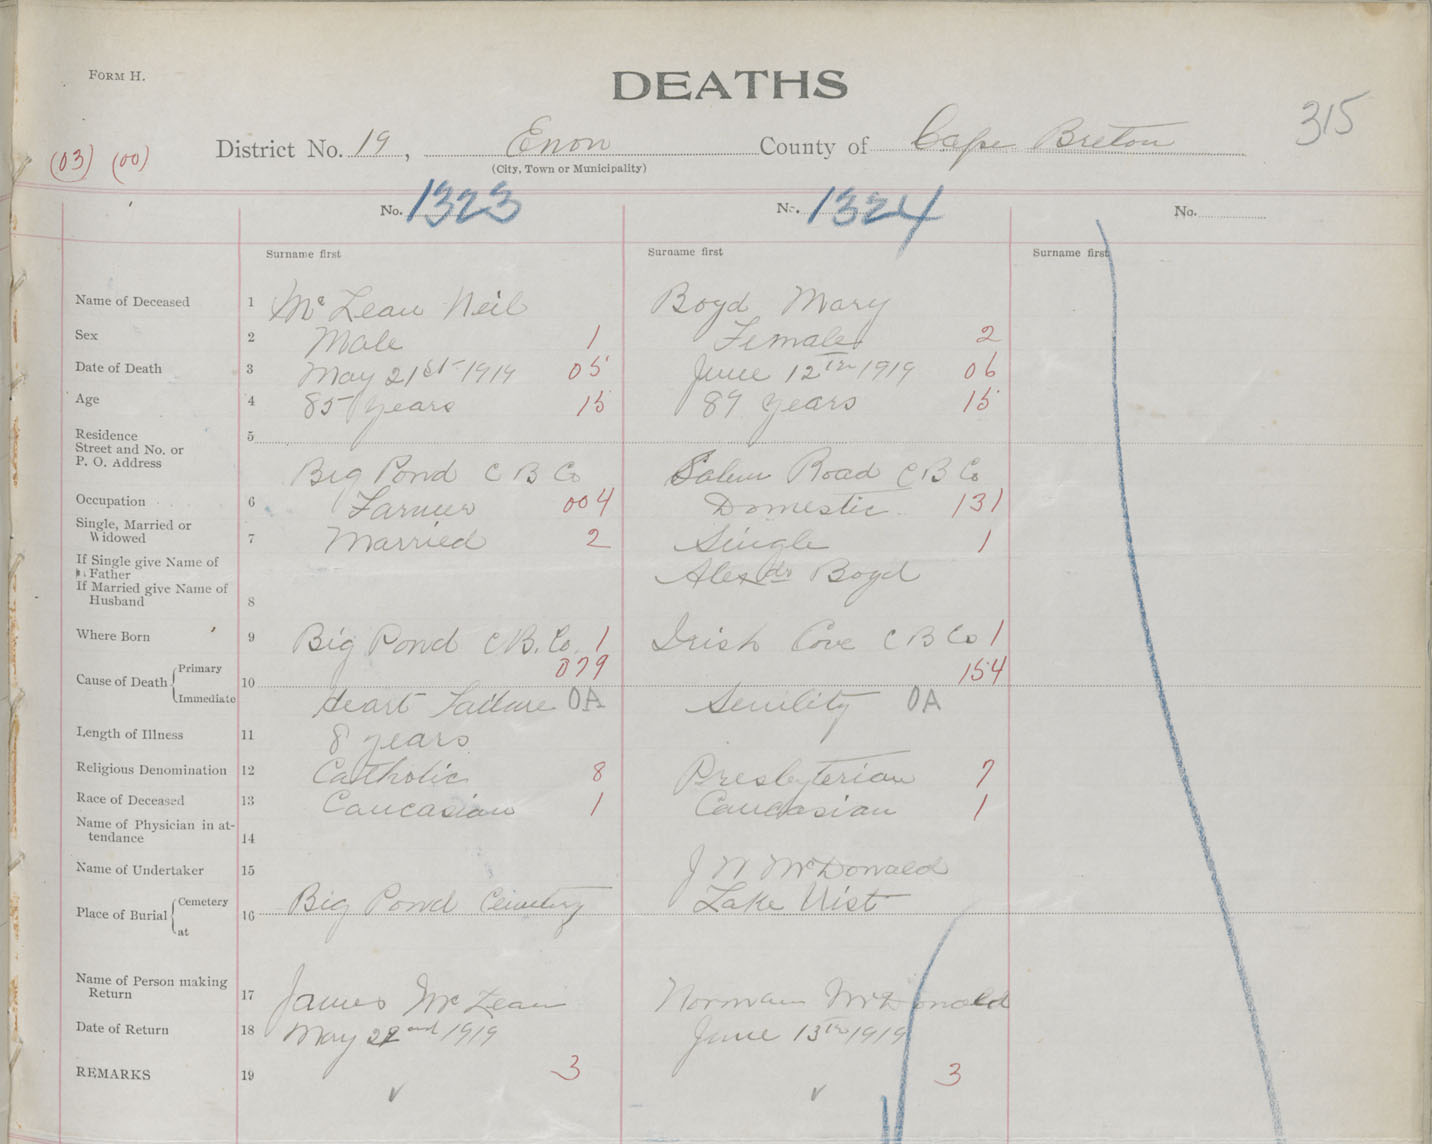 FORM H.
DEATHS
315
(03) (00)
District No. 19, Enon County of Cape Breton
(City, Town or Municipality)
No. 1323 No. 1324 No.
Surname first Surname first Surname first
Name of Deceased 1 Mc Lean Neil Boyd Mary
Sex 2 Male 1 Female 2
Date of Death 3 May 21st 1919 05 June 12th 1919 06
Age 4 85 years 15 89 years 15
Residence 5
Street and No. or
P. O. Address
Big Pond C B Co Salem Road C B Co
Occupation 6 Farmer 004 Domestic 131
Single, Married or
Widowed 7 Married 2 Single 1
If Single give Name of
Father Alexdr Boyd
If Married give Name of
Husband 8
Where Born 9 Big Pond C B. Co. 1 Irish Cove C B Co 1
079 154
Cause of Death { Primary 10
Immediate Heart Failure OA Senility OA
Length of Illness 11 8 years
Religious Denomination 12 Catholic 8 Presbyterian 7
Race of Deceased 13 Caucasian 1 Caucasian 1
Name of Physician in at-
tendance 14
Name of Undertaker 15 J N McDonald
Place of Burial { Cemetery 16 Big Pond Cemetery Lake Uist
at
Name of Person making
Return 17 James Mc Lean Norman McDonald
Date of Return 18 May 22nd 1919 June 13th 1919
REMARKS 19 3 3